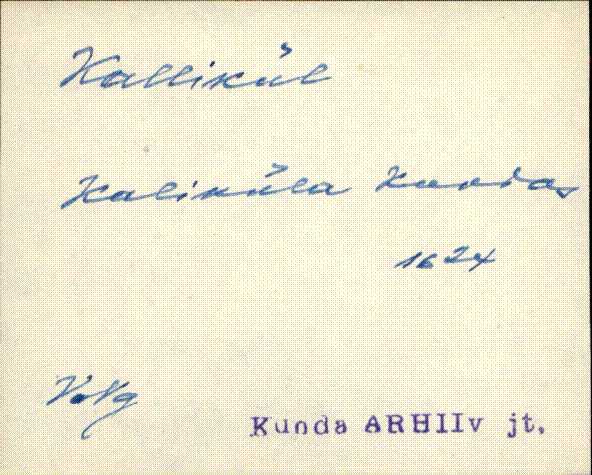 Kallikül
Kaliküla Kundas
1624
V. Ng
Kunda ARHIIv jt.